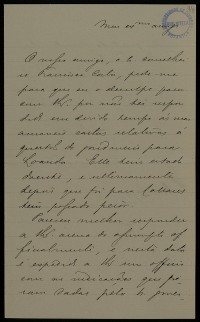 Meu ex.mo amigo
O nosso amigo, o conselheiro
Francisco Costa, pede-me
para que eu o desculpe para
com V.Ex.ª por não ter respon
dido em devido tempo ás suas
amaveis cartas relativas á
questão do
Loanda. Elle tem estado
doente, e ultimamente
depois que foi para Collares
tem passado peior.
Pareceu melhor responder
a V.Ex.ª acerca do assumpto of
ficialmente, e nesta data
é expedido a V.Ex.ª um officio
com as indicações que fo
ram dadas pelo